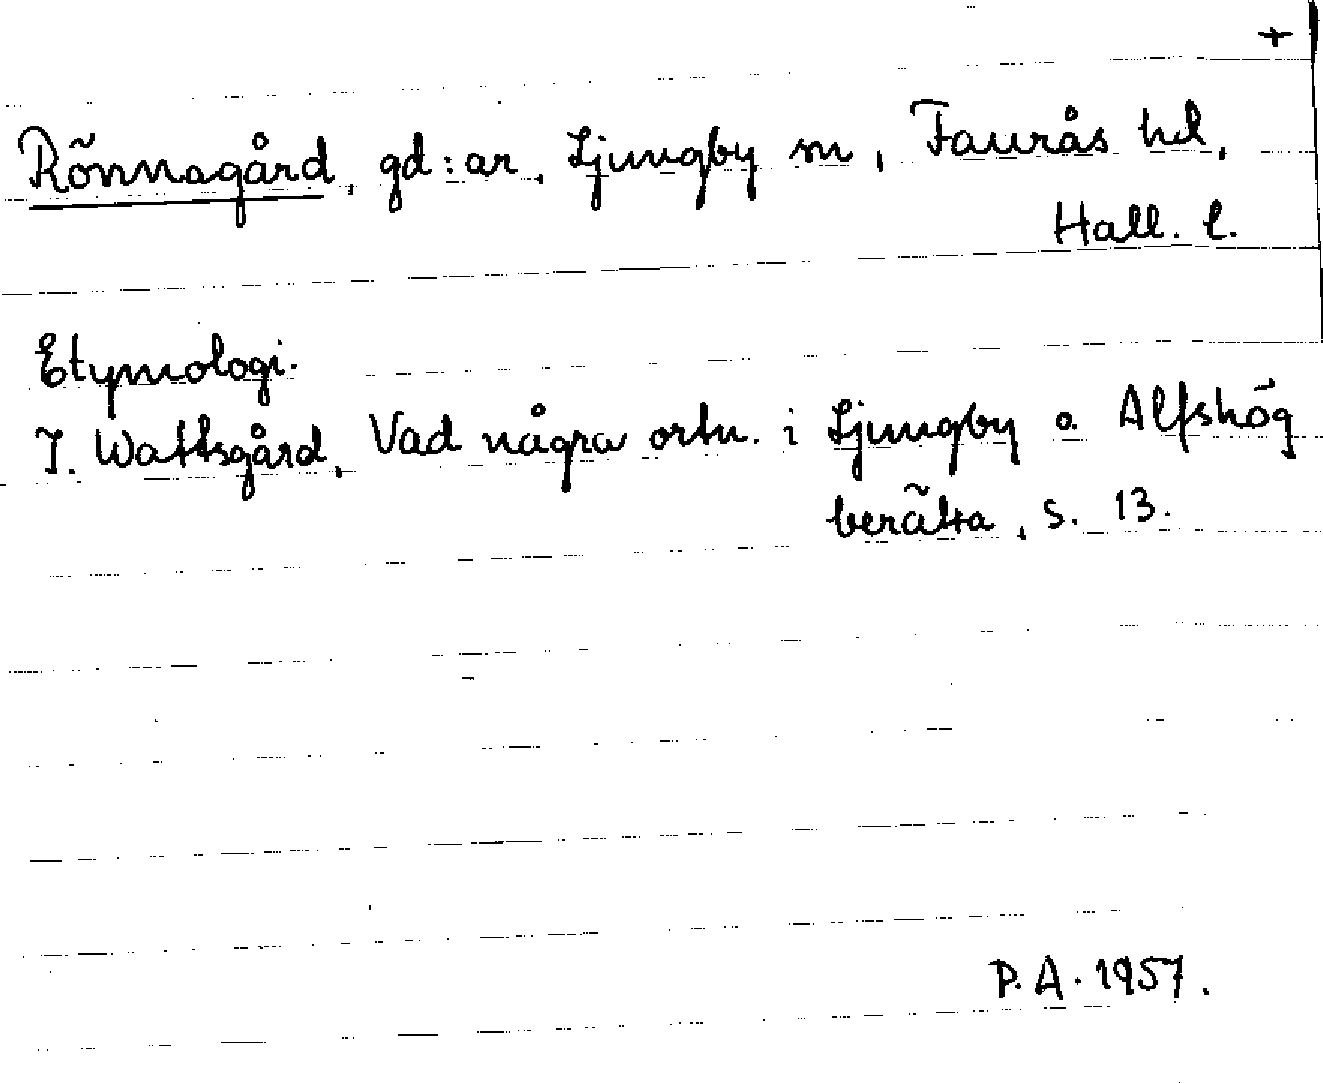 +
Rönnagård, gd:ar, Ljungby sn, Faurås hd,
Hall. l.
Etymologi.
J. Wattsgård, Vad några ortn. i Ljungby o. Alfshög
berätta, s. 13.
P. A. 1957.